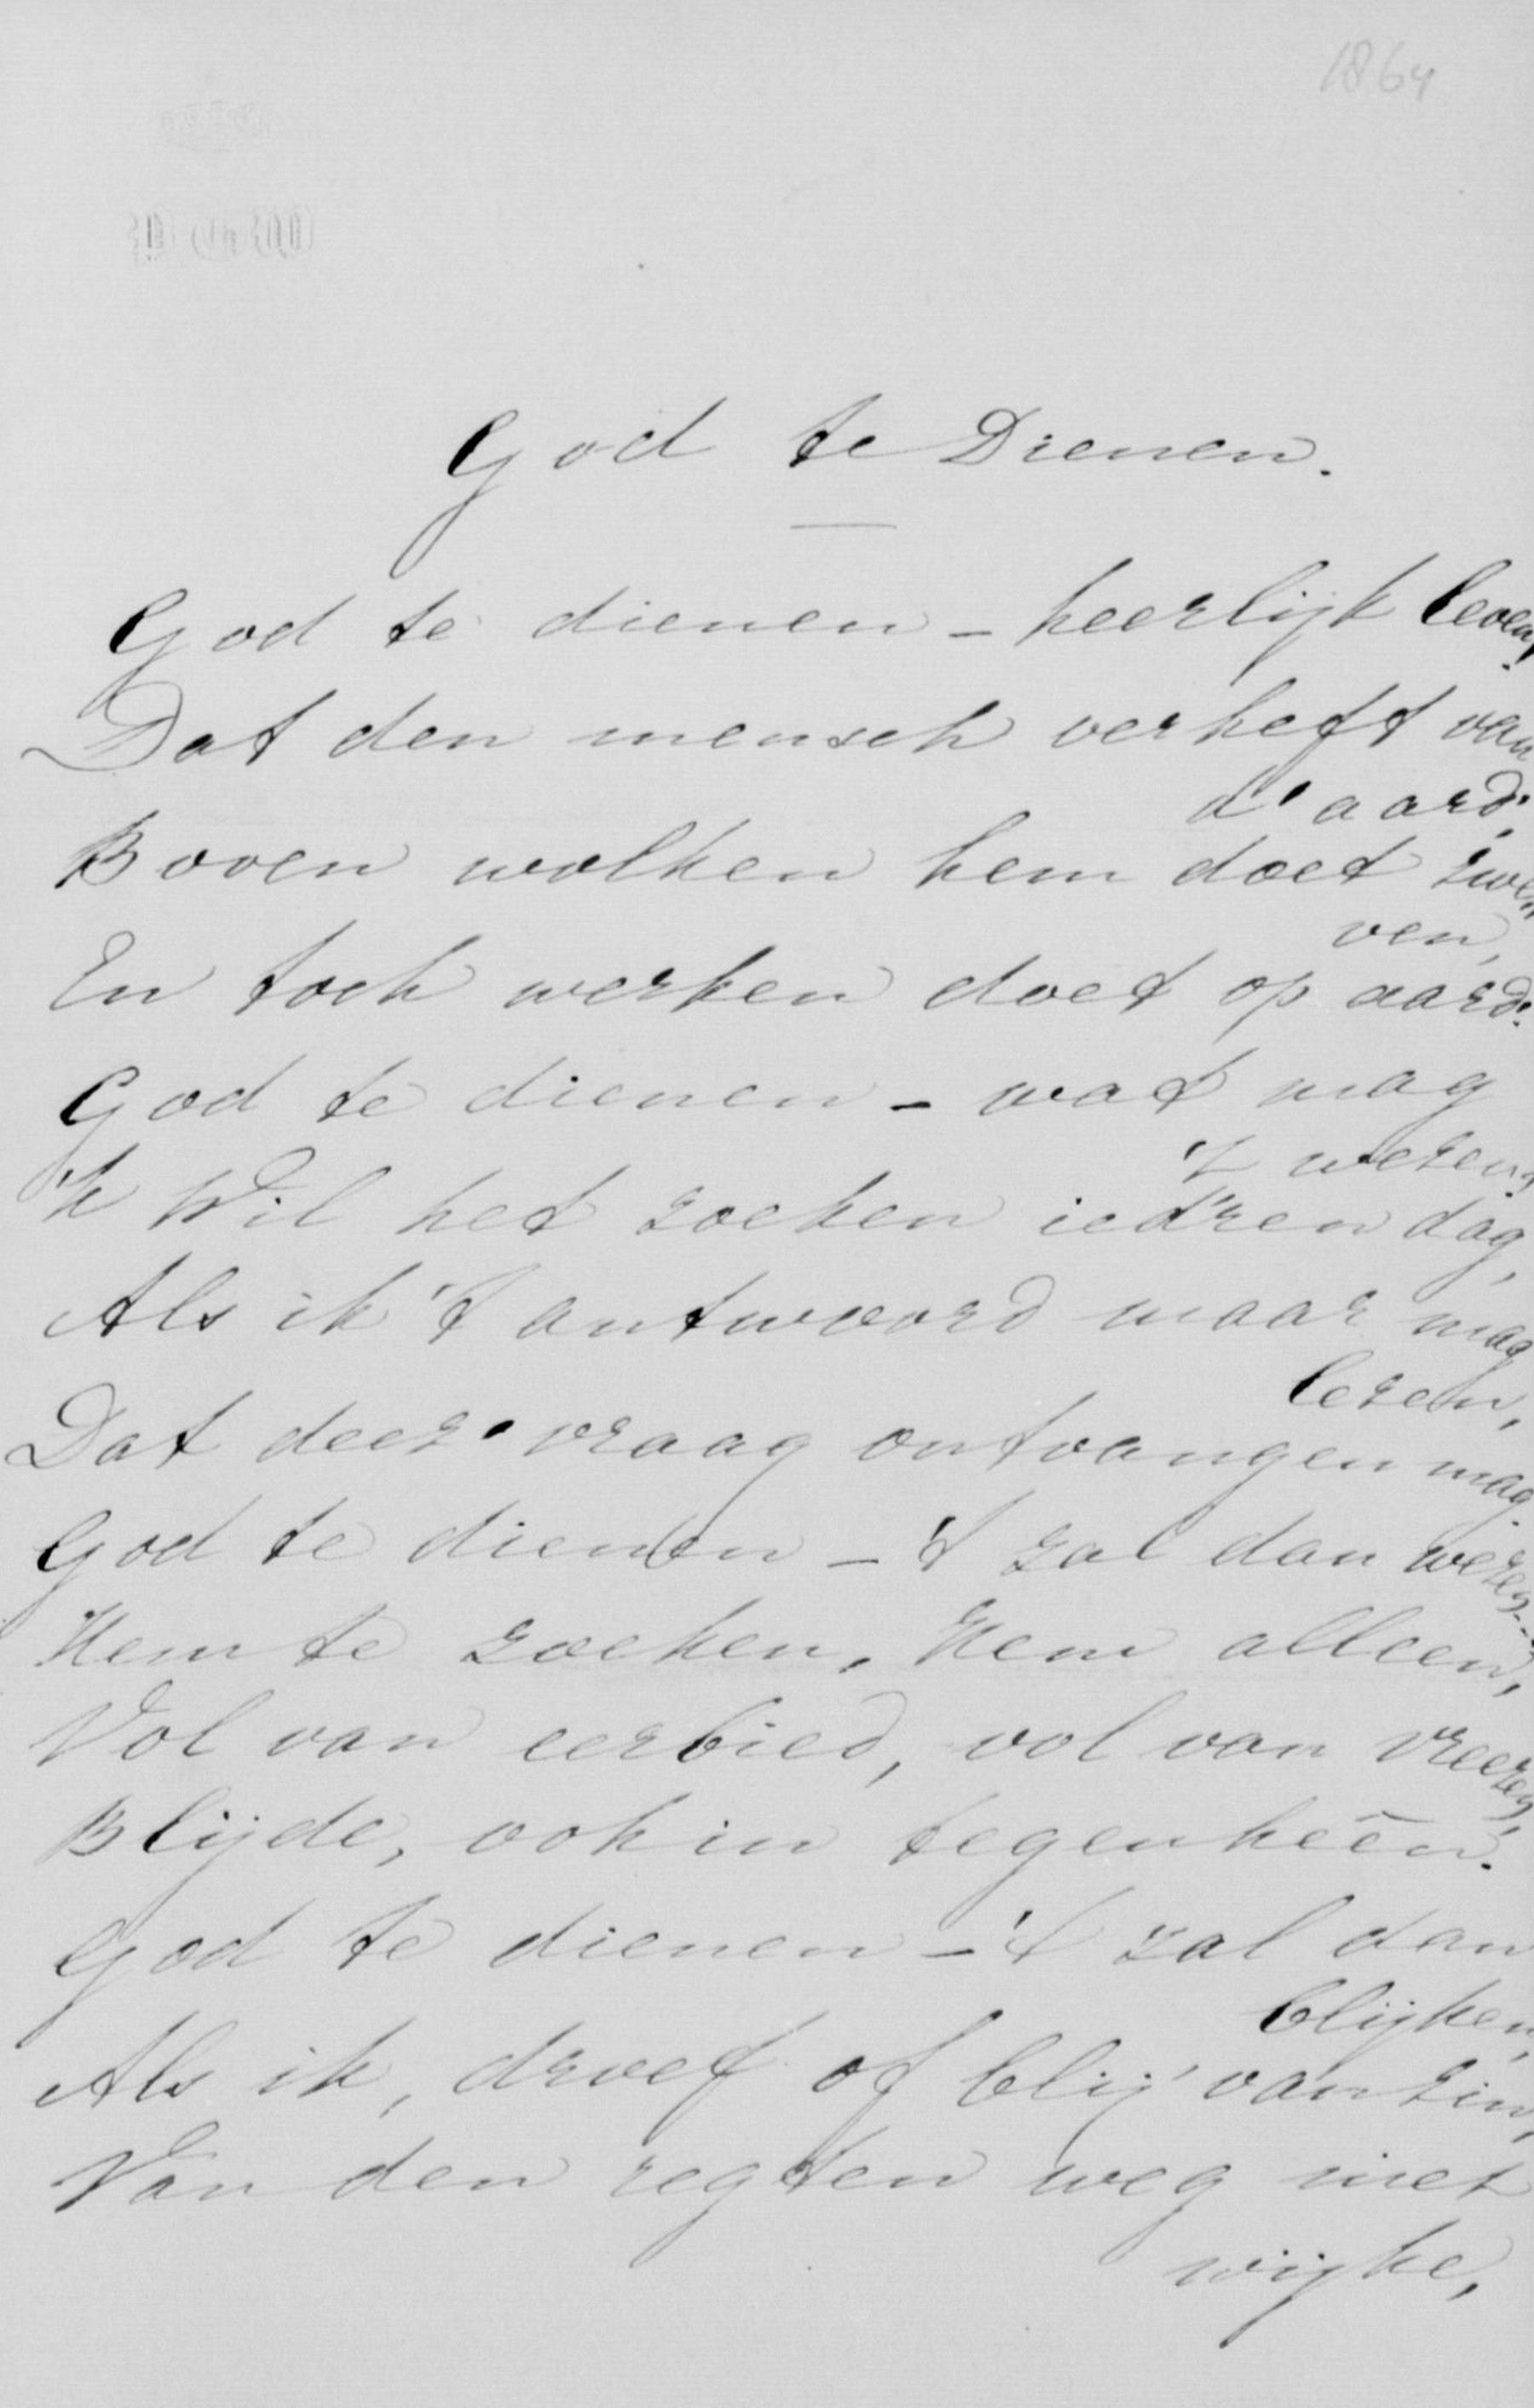 1864
God te Dienen.
God te dienen - heerlijk leven,
Dat den mensch verheft van
d' aard;
Boven wolken hem doet zwe-
ven,
En toch werken doet op aard.
God te dienen - wat mag
't wezen,
'k Wil het zoeken ied'ren dag,
Als ik 't antwoord maar mag
lezen,
Dat deez' vraag ontvangen mag.
God te dienen - 't zal dan wezen...
Hem te zoeken, Hem alleen,
Vol van eerbied, vol van vreezen,
Blijde, ook in tegenheên.
God te dienen - 't zal dan
blijken,
Als ik, droef of blij van zin,
Van den regten weg niet
wijke,